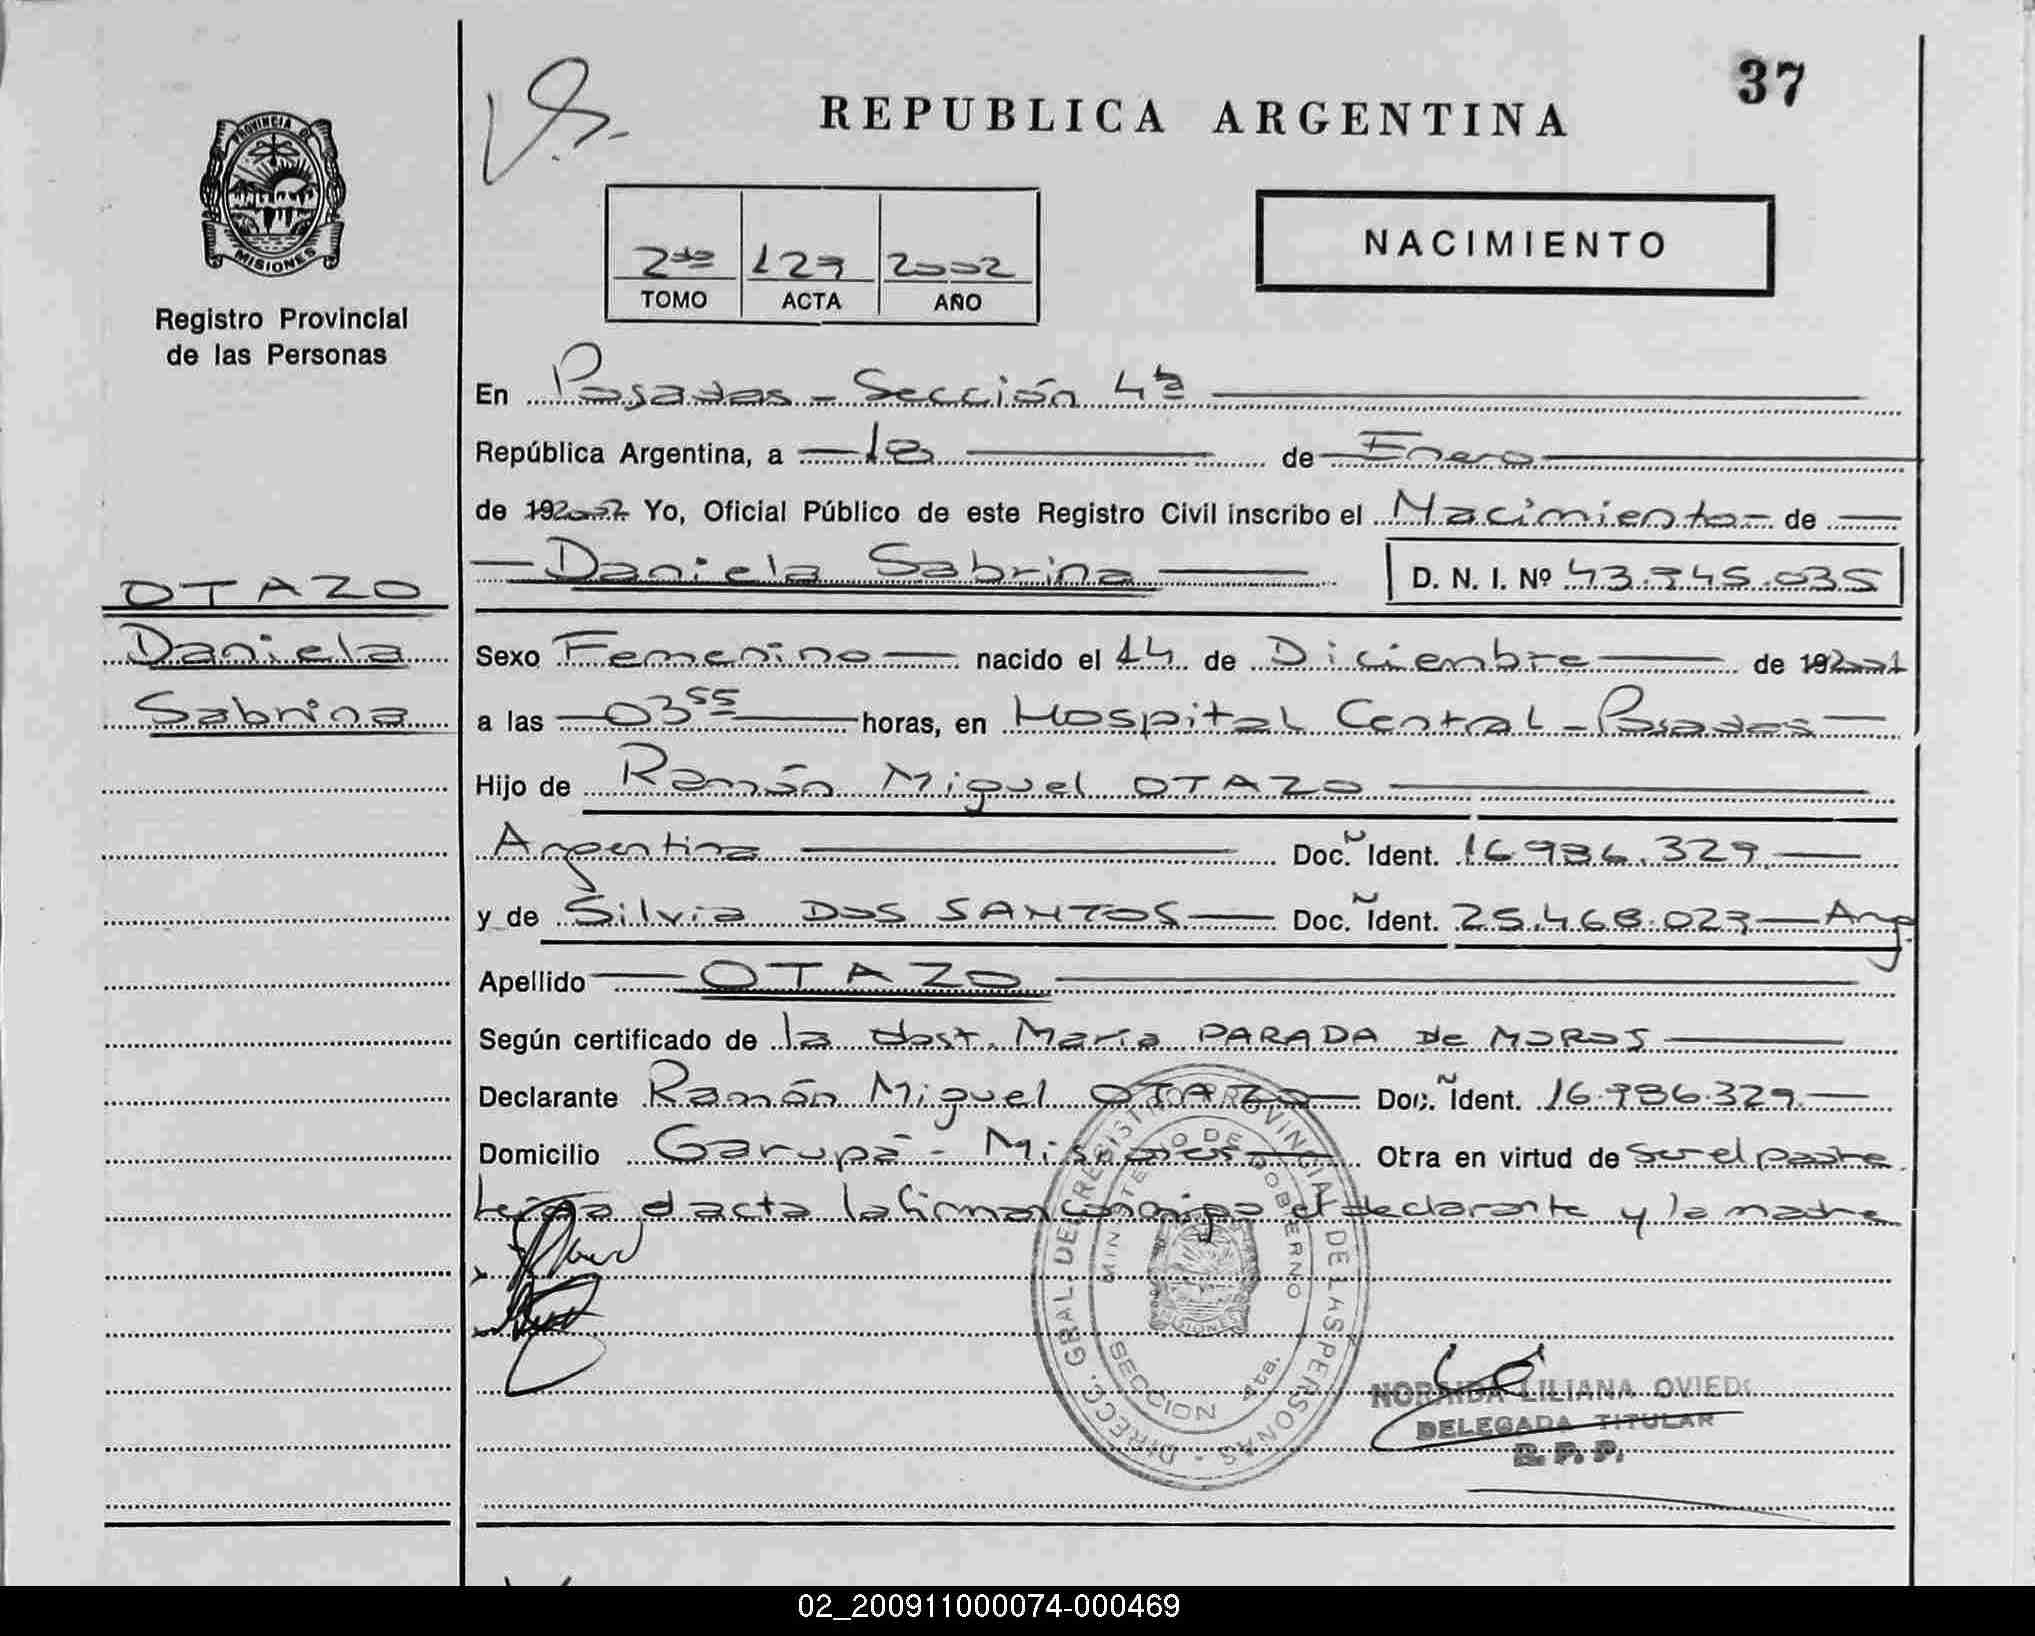 37
REPUBLICA ARGENTINA
PROVINCIA DE
MISIONES
Registro Provincial
de las Personas
2do 129 2002
TOMO ACTA AÑO
NACIMIENTO
En Posadas - Sección 4ta
República Argentina, a 18 de Enero
de 192002 Yo, Oficial Público de este Registro Civil inscribo el Nacimiento de
Daniela Sabrina D. N. I. Nº 43.945.035
OTAZO
Daniela
Sabrina
Sexo Femenino nacido el 14 de Diciembre de 192001
a las 03 55 horas, en Hospital Central - Posadas
Hijo de Ramón Miguel OTAZO
Argentina Doc. Ident. 16.986.329
y de Silvia DOS SANTOS Doc. Ident. 25.468.029 Arg
Apellido OTAZO
Según certificado de la obst. María PARADA de MOROS
Declarante Ramón Miguel OTAZO Doc. Ident. 16.986.329
Domicilio Garupá - Misiones Obra en virtud de ser el padre.
Leída el acta la firman conmigo el declarante y la madre
DIRECC. GRAL. DEL REGISTRO PROVINCIAL DE LAS PERSONAS
MINISTERIO DE GOBIERNO
SECCION 4ta.
NORAIDA LILIANA OVIEDO
DELEGADA TITULAR
R. P. P.
02_200911000074-000469